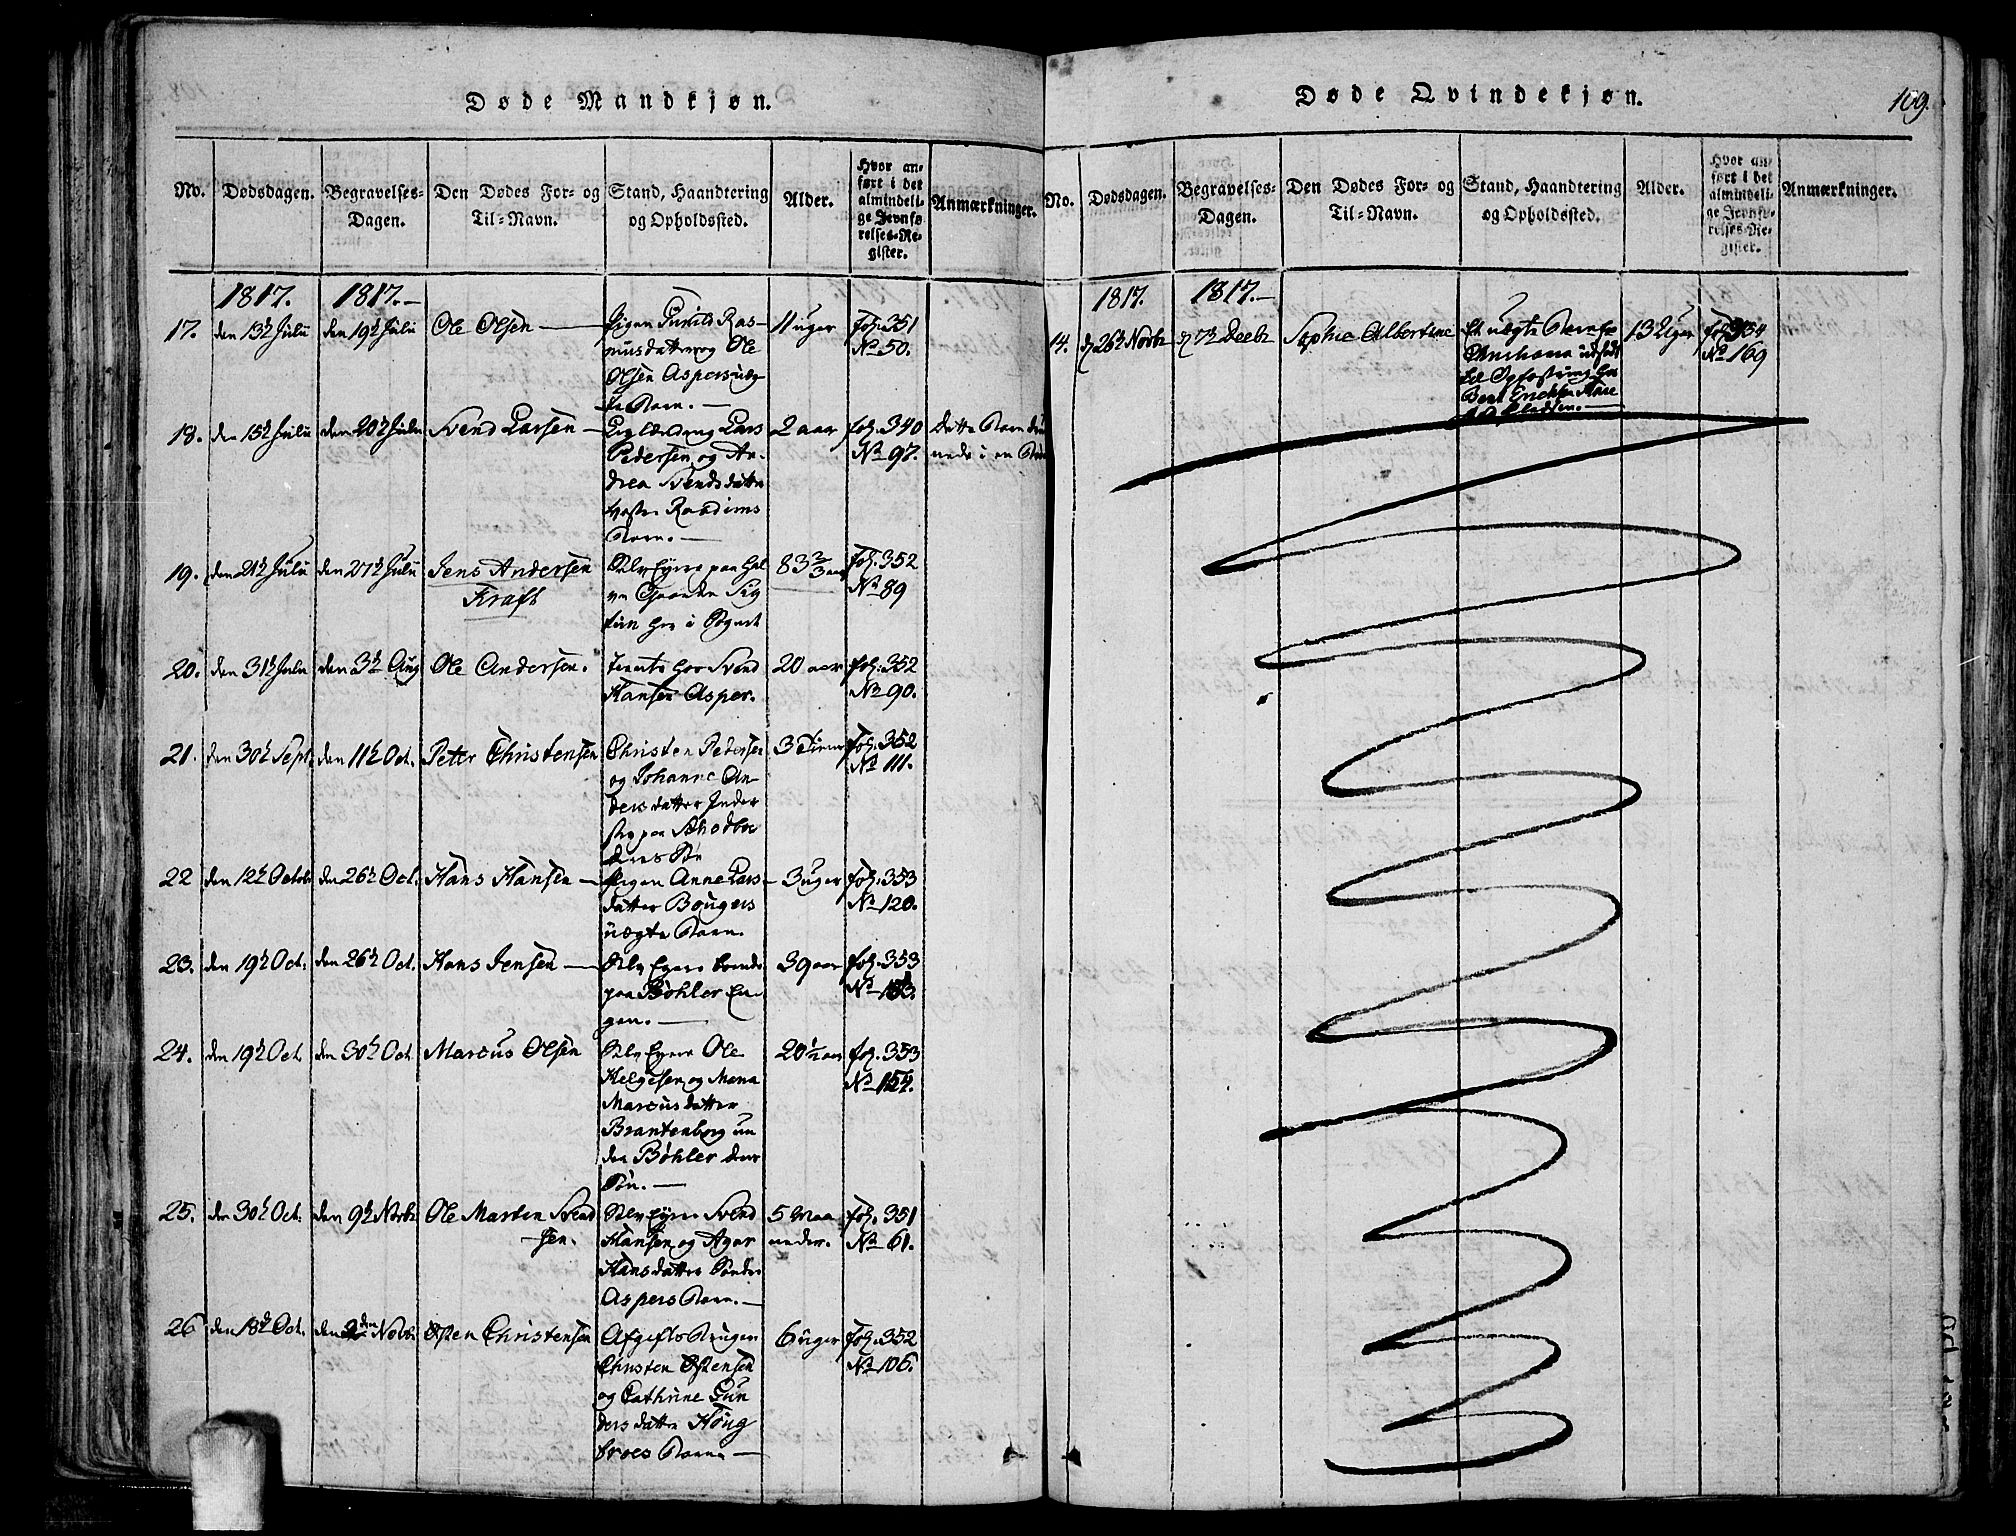 Døde Mandkjøn.
No.
Dødsdagen.
Begravelses-
Dagen.
Den Dødes For- og
Til-Navn.
Stand, Haandtering
og Opholdssted.
Alder.
Hvor an-
ført i det
almindeli-
ge Jevnfø-
relses-Re-
gister.
Anmærkninger.
1817. 1817.
17. den 13de Julii den 19de Julii Ole Olsen
Pigen Gunild Ras-
musdatter og Ole
Olsen Aspers uæg-
te Barn.
11 uger
fol. 351
No 50.
18. den 15de Julii den 20de Julii Svend Larsen
Lars
Pedersen og An-
drea Svendsdatter
Barn.
2 aar
fol. 340
No 97.
dette Barn
nede i en
19. den 21de Julii den 27de Julii Jens Andersen
Kraft
Selv Eyere paa hal-
ve Gaarden
her i Sognet
83 2/3 aar
fol. 352
No 89
20. den 31te Julii den 3de Aug Ole Andersen.
hos Svend
Hansen Asper.
20 aar
fol. 352
No 90.
21. den 30te Sept. den 11te Oct. Petter Christensen
Christen Pedersen
og Johanne An-
dersdatter Inder-
paa
deres Søn
3 Timer
fol. 352
No 111.
22 den 12te Octbr den 26de Oct. Hans Hansen
Pigen Anne Lars-
datter Bougers
uægte Barn.
3 uger
fol. 353
No 120.
23. den 19de Oct. den 26de Oct. Hans Jensen
Selv Eyere
paa Bøhler En-
gen.
39 aar
fol. 353
No 153.
24. den 19de Oct. den 30te Oct Marcus Olsen
Selv Eyere Ole
Helgesen og Maria
Marcusdatter
Brantenborg un-
der Bøhler deres
Søn.
20 1/2 aar
fol. 353
No 154.
25. den 30te Oct. den 9de Novbr Ole Marten Svend
sen.
Selv Eyere Svend
Hansen og
Hansdatter Søndre
Aspers Barn.
5 Maa
neder.
fol. 351
No 61.
26 den 18de Oct. den 2den Novbr Østen Christensen
Afgifts Bruger
Christen Østensen
og Cathrine Gun
dersdatter Houg
broes Barn
6 uger
fol. 352
No 106.
Døde Qvindekjøn.
109.
No.
Dødsdagen.
Begravelses-
Dagen.
Den Dødes For- og
Til-Navn.
Stand, Haandtering
og Opholdssted.
Alder.
Hvor an-
ført i det
almindeli-
ge Jevnfø-
relses-Re-
gister.
Anmærkninger.
1817. 1817.
14. d 26de Novbr d 7de Decbr Sophie Albertine
Et uægte Barn fra
Christiania udsadt
til Opfostring hos
Bent
13 Uger
fol. 354
No 169